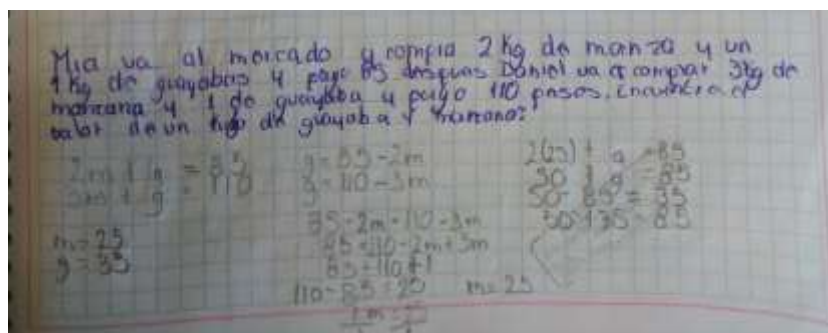 Mia va al mercado y compra 2 kg de manza y un
1 kg de guayabas y pago 85 despues Daniel va a comprar 3kg de
manzana y 1 de guayaba y pago 110 pesos. Encuentra el
valor de un kilo de guayaba y manzana?
2m + g = 85
3m + g = 110
m = 25
g = 35
g = 85 - 2m
g = 110 - 3m
85 - 2m = 110 - 3m
85 = 110 - 2m + 3m
85 - 110 + 1
110 - 85 = 25 m = 25
2(25) + g = 85
50 + g = 85
50 - 85 = 35
50 + 35 = 85